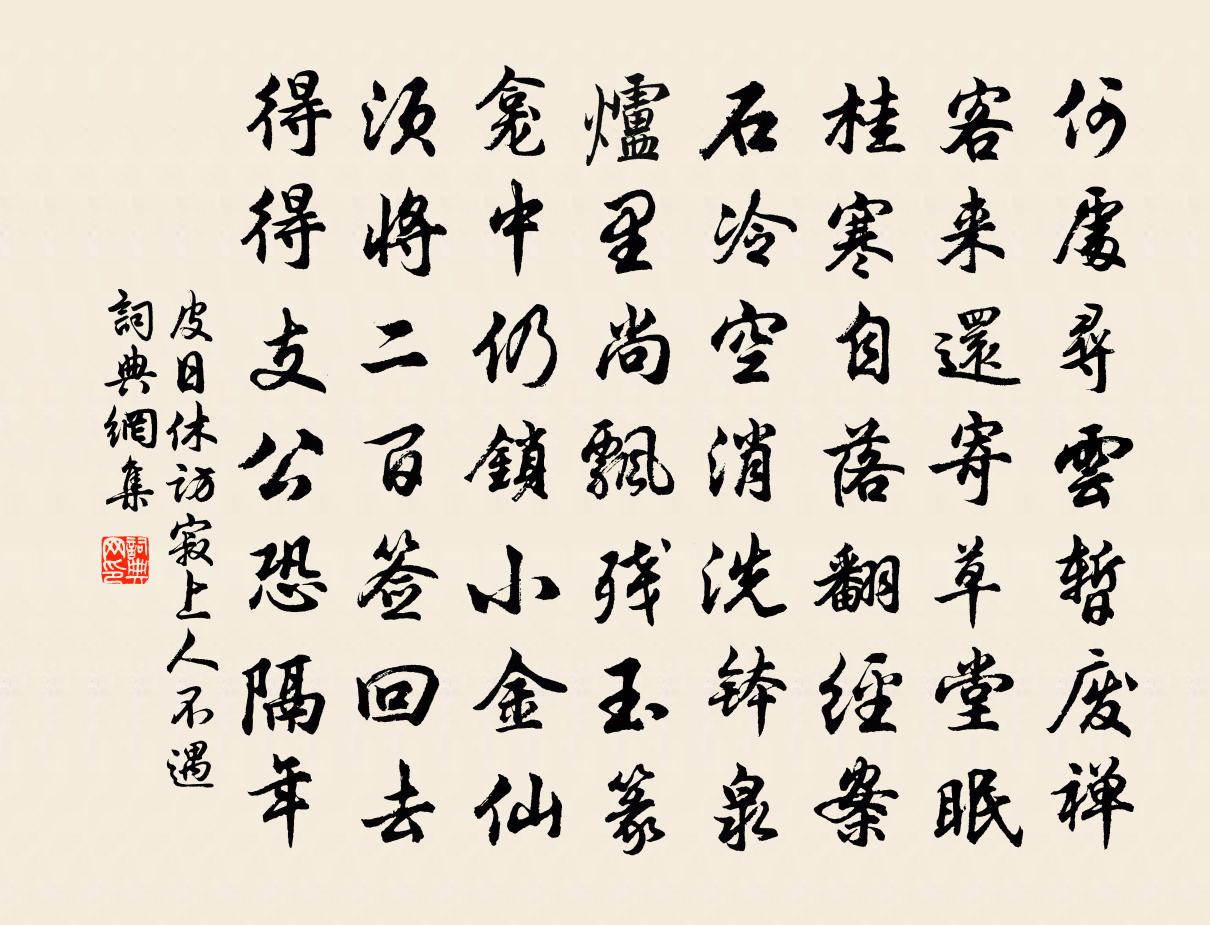 何處尋雲暫废禅
客来還寄草堂眠
桂寒自落翻經案
石冷空消洗钵泉
爐里尚飄残玉篆
龛中仍鎖小金仙
须將二百签回去
得得支公恐隔年
皮日休访寂上人不遇
詞典網集
詞典网印